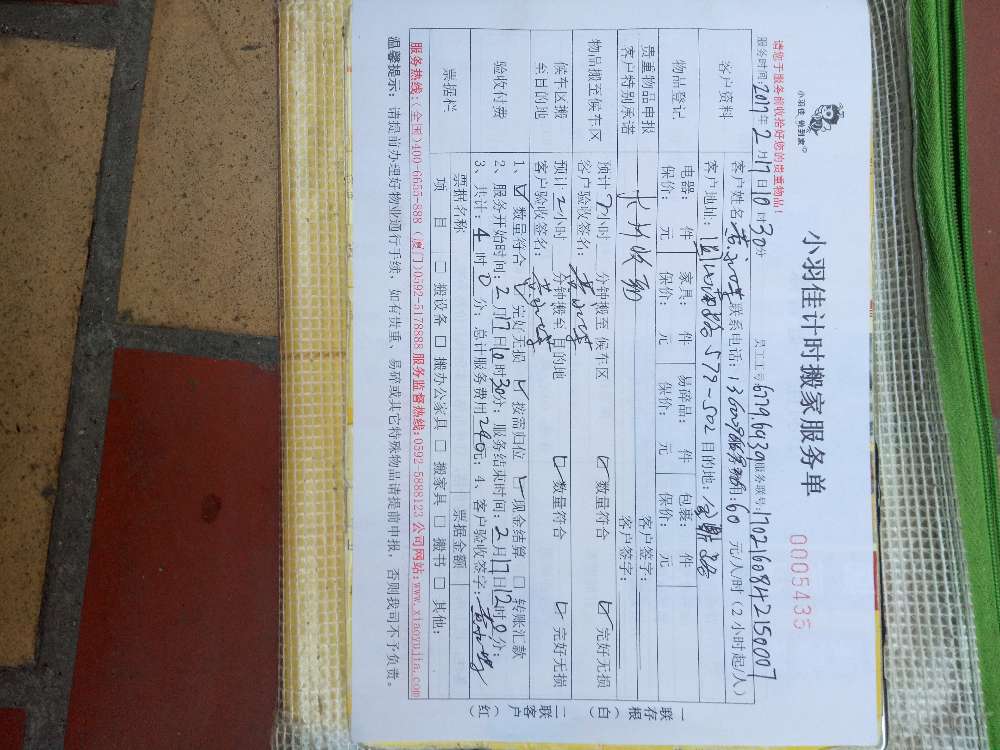 小羽佳 做到家
小羽佳计时搬家服务单
0005435
请您于服务前收拾好您的贵重物品!
服务时间:2017年2月17日10时30分 员工工号:67796939 服务联号:17021608421500007
客户资料
客户姓名 联系电话: 服务费用:60 元/人/时(2小时起/人)
客户地址: 573-502 目的地:
物品登记
电器: 件 家具: 件 易碎品: 件 包裹: 件
保价: 元 保价: 元 保价: 元 保价: 元
贵重物品申报 客户签字:
客户特别承诺 客户签字:
物品搬至候车区
预计 2小时 分钟搬至候车区 数量符合 完好无损
客户验收签名:
候车区搬至目的地
预计2小时 分钟搬至目的地 数量符合 完好无损
客户验收签名:
验收付费
1、数量符合 完好无损 按需归位 现金结算 转账汇款
2、服务开始时间:2月17日10时30分;服务结束时间:2月17日12时0分;
3、共计:4时0分,总计服务费用240元;4、客户验收签字:
票据栏
票据名称 票据金额
项目 搬设备 搬办公家具 搬家具 搬书 其他:
服务热线:(全国)400-6655-888 (厦门)0592-5178888 服务监督热线:0592-5888123 公司网站:www.xiaoyujia.com
温馨提示:请提前办理好物业通行手续,如有贵重、易碎或其它特殊物品请提前申报,否则我司不予负责。
一联存根(白)
二联客户(红)